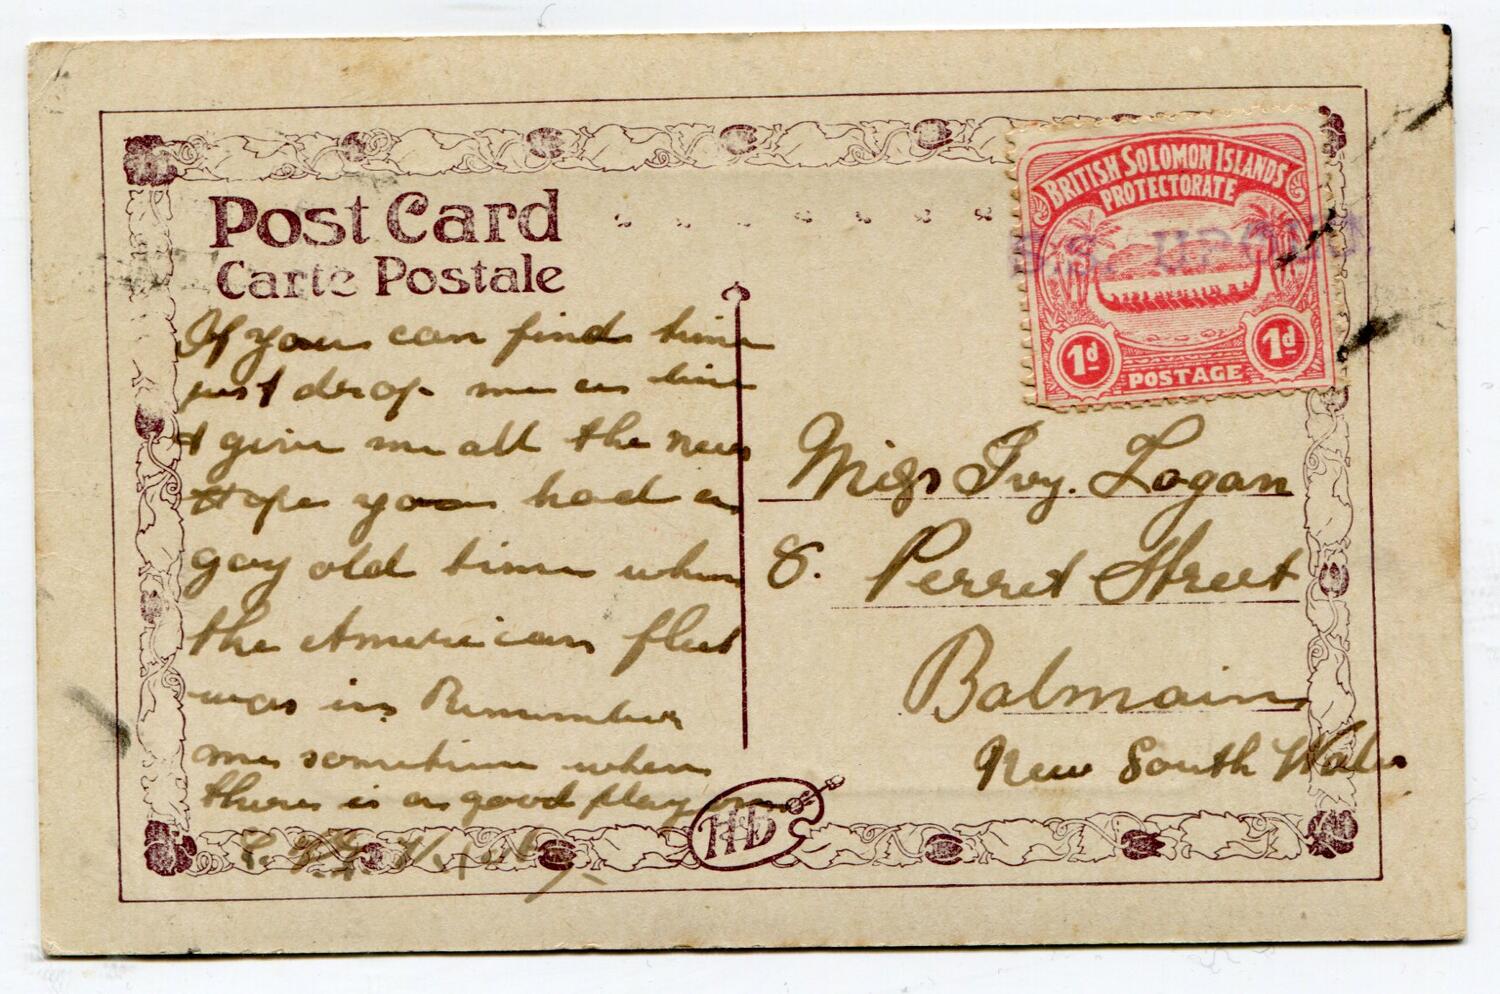 Post Card
Carte Postale
BRITISH SOLOMON ISLANDS
PROTECTORATE
S.S. UPOLU
1d POSTAGE 1d
If you can find time
just drop me a line
& give me all the news
Hope you had a
gay old time when
the American fleet
was in. Remember
me sometime when
there is a good play on
Miss Ivy. Logan
8. Perret Street
Balmain
New South Wales
HB